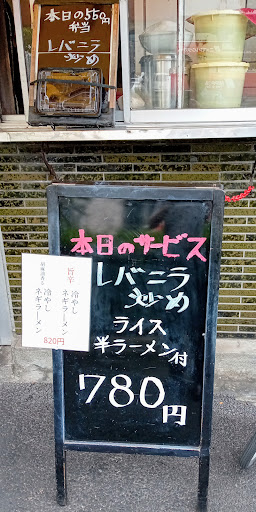 本日の550円
弁当
レバニラ
炒め
本日のサービス
レバニラ
炒め
ライス
半ラーメン付
780円
旨辛
冷やし
ネギラーメン
冷やし
ネギラーメン
820円